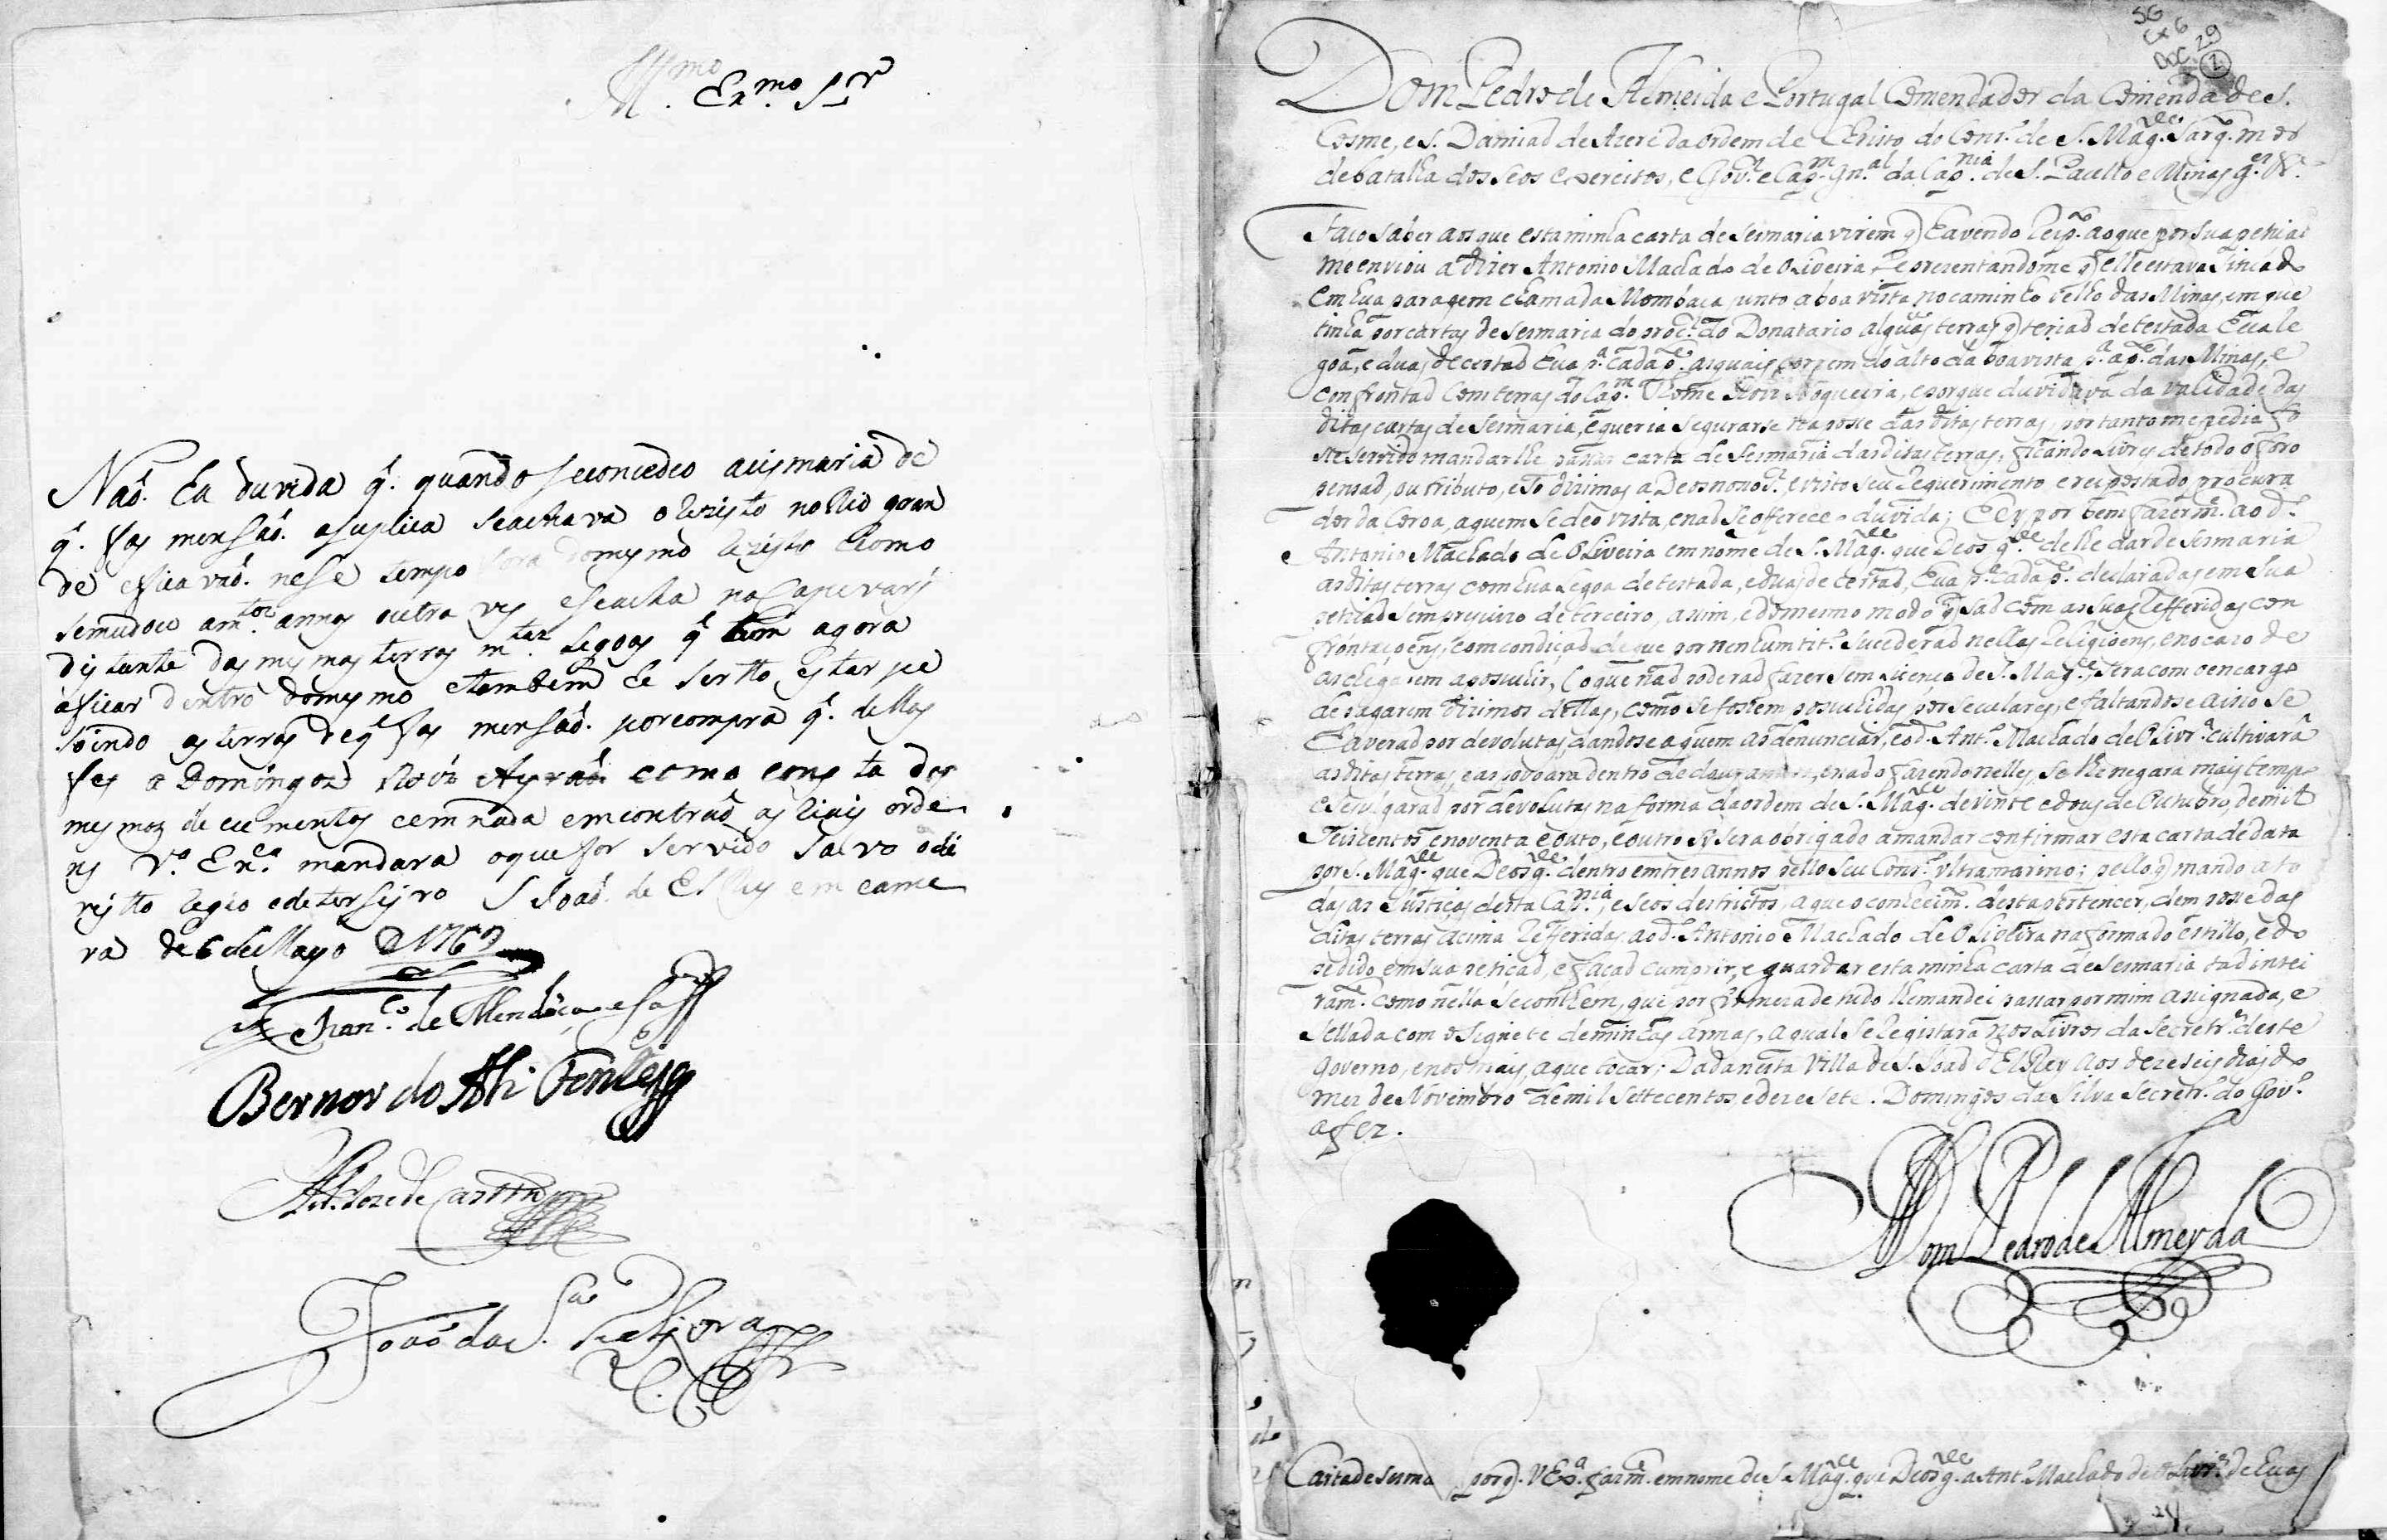 Ill.mo Ex.mo Sr
Naõ. ha duvida q̃. quando se concedeo a sismaria de
q̃. fas mensaõ. a suplica se achava o rezisto no Rio gran
de e ficavaõ. nese tempo fora do mesmo rezisto e como
se mudou a m.tos annos outra ves e se acha no Capevarÿ
distante das mesmas terras m.tas legoas q̃ tem agora
a ficar dentro do mesmo e tambem he serto estar pe
soindo as terras de q̃ fas mensaõ. por compra q̃. dellas
fes a Domingos Roiz Ayraõ como consta dos
mesmos documentos e em nada emcontraõ as riais orde
ns V.a Ex.ca mandara o que for servido salvo o di
reitto regio e de terseiro S Joaõ. de El Rey em came
ra de 6 de Mayo D 1763
Fran.co de Mendoça e Sa
Bernardo
Joze de Castro
Joaõ da S.a
SG
Cx 6
DOC 29
1
Dom Pedro de Almeida e Portugal Comendador da Comenda de S.
Cosme, e S. Damiaõ de Azere da ordem de Christo do Cons.o de S. Mag.de Sarg.to mor
de batalha dos seos exercitos, e Gov.or e Cap.m Gn.al da Cap.nia de S. Paullo e Minas g.es &.a
Faço saber aos que esta minha carta de Sesmaria virem q̃ havendo resp.to ao que por sua petiçaõ
me enviou a dizer Antonio Machado de Oliveira, representandome q̃ elle estava situado
em hua paragem chamada Mombaça junto a boa vista no caminho velho das Minas, em que
tinha por cartas de Sesmaria do proc.or do Donatario alguãs terras q̃ teriaõ de testada huã le
goa, e duas de certaõ hua p.a cada p.te as quais correm do alto da boa vista p.a a p.te das Minas, e
confrontaõ com terras do Cap.m Thome Roiz Nogueira, e porque duvidava da validade das
ditas cartas de Sesmaria, e queria segurarse na posse das ditas terras, por tanto me pedia fo
sse servido mandarlhe passar carta de Sesmaria das ditas terras, ficando livres de todo o foro
pensaõ, ou tributo, e só dizimos a Deos nosso S.r e visto seu requerimento e reposta do procura
dor da Coroa, a quem se deo vista, e naõ se offereceo duvida; Hey por bem fazer m.ce ao d.o
Antonio Machado de Oliveira em nome de S. Mag.de que Deos g.de de lhe dar de Sesmaria
as ditas terras com hua legoa de testada, e duas de certaõ, hua p.a cada p.te declaradas em sua
petiçaõ sem prejuizo de terceiro, assim, e do mesmo modo q̃ saõ com as suas refferidas con
frontaçoens, com condiçaõ de que por nenhum tit.o sucederaõ nellas Religioens, e no cazo de
as chegarem a possuhir, (o que naõ poderaõ fazer sem licença de S. Mag.de) sera com o encargo
de pagarem dizimos dellas, como se fossem possuhidas por seculares, e faltandose a isso se
haveraõ por devolutas dandose a quem as denunciar, e o d.o Ant.o Machado de Olivr.a cultivará
as ditas terras, e as povoara dentro de dous annos, e naõ o fazendo nelles, se lhe negará mais tempo
e se julgaraõ por devolutas na forma da ordem de S. Mag.de de vinte e dous de Outubro, de mil
seiscentos, e noventa e outo, e outro sy será obrigado a mandar confirmar esta carta de data
por S. Mag.de que Deos g.de dentro em tres annos pello seu Cons.o ultramarino; pello q̃ mando a to
das as Justiças desta Cap.nia, e seos destrictos, a que o conhecim.to desta pertencer, dem posse das
ditas terras acima refferidas ao d.o Antonio Machado de Oliveira na forma do estillo, e do
pedido em sua petiçaõ, e façaõ cumprir, e guardar esta minha carta de Sesmaria taõ intei
ram.te como nella se conthem, que por firmeza de tudo lhe mandei passar por mim assignada, e
sellada com o signete de minhas armas, a qual se registará nos Livros da Secretr.a deste
Governo, e nos mais, a que tocar; Dada nesta Villa de S. Joaõ d'El Rey aos dezeseis dias do
mez de Novembro de mil settecentos e dezesete. Domingos da Silva Secretr.o do Gov.o
a fez.
Dom Pedro de Almeyda
Carta de sesma por q̃. V Ex.a faz m.ce em nome de S. Mag.de que Deos g.de a Ant.o Machado de Olivr.a de huas